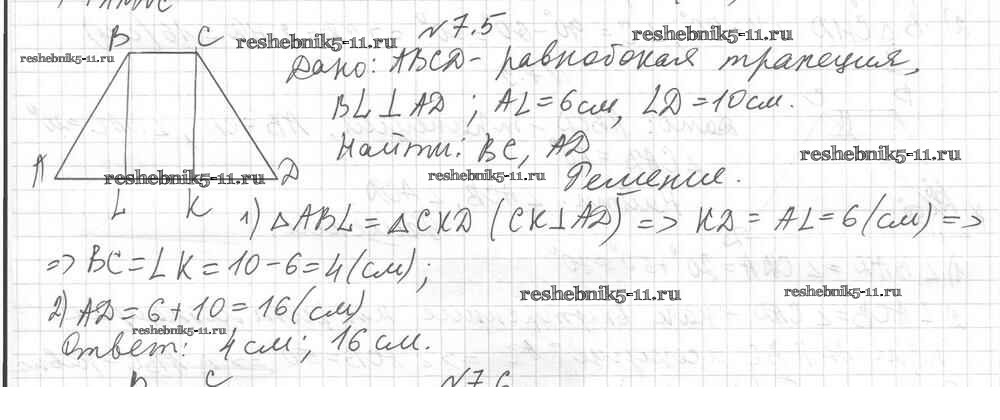 №7.5
B C reshebnik5-11.ru reshebnik5-11.ru
reshebnik5-11.ru Дано: ABCD- равнобокая трапеция,
BL⊥AD ; AL=6см, LD=10см.
Найти: BC, AD reshebnik5-11.ru
A reshebnik5-11.ru D reshebnik5-11.ru Решение.
L K 1) △ABL=△CKD (CK⊥AD) => KD=AL=6(см)=>
=> BC=LK=10-6=4(см);
reshebnik5-11.ru reshebnik5-11.ru
2) AD=6+10=16(см)
reshebnik5-11.ru
Ответ: 4см; 16см.
B C №7.6